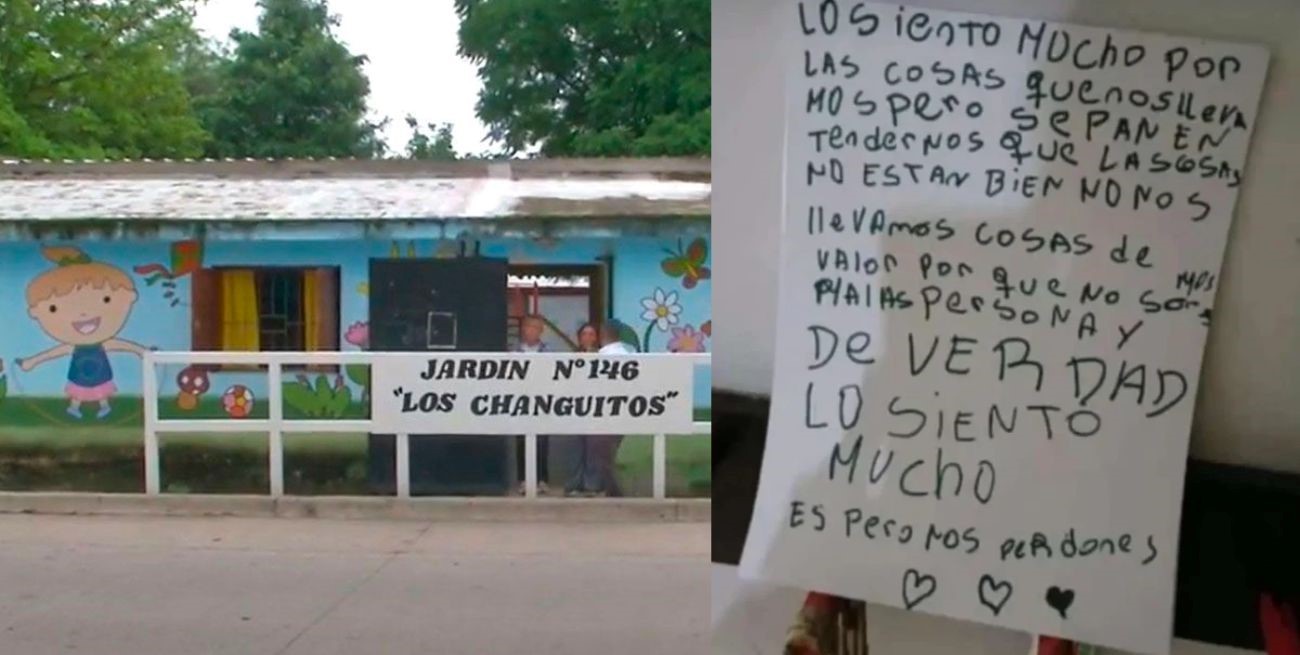 JARDIN Nº 146
"LOS CHANGUITOS"
LOSiento MUCHO POR
LAS COSAS quenoslleva
MOSpero SEPAN EN
TenderNOS QUE LASCOSAS
NO ESTAN BIEN NO NOS
llevamos COSAS de
VALOR POR QUE NO SOMOS
MALAS PERSONA Y
De VERDAD
LO SIENTO
MUCHO
ES Pero NOS perdones